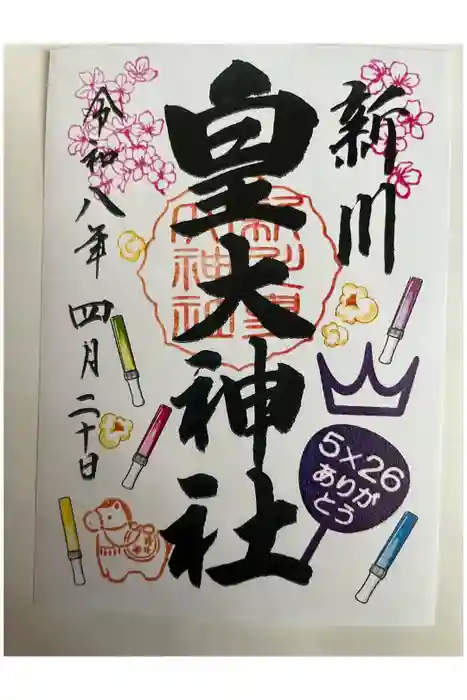 新川
皇大神社
令和八年四月二十日
5×26
ありが
とう